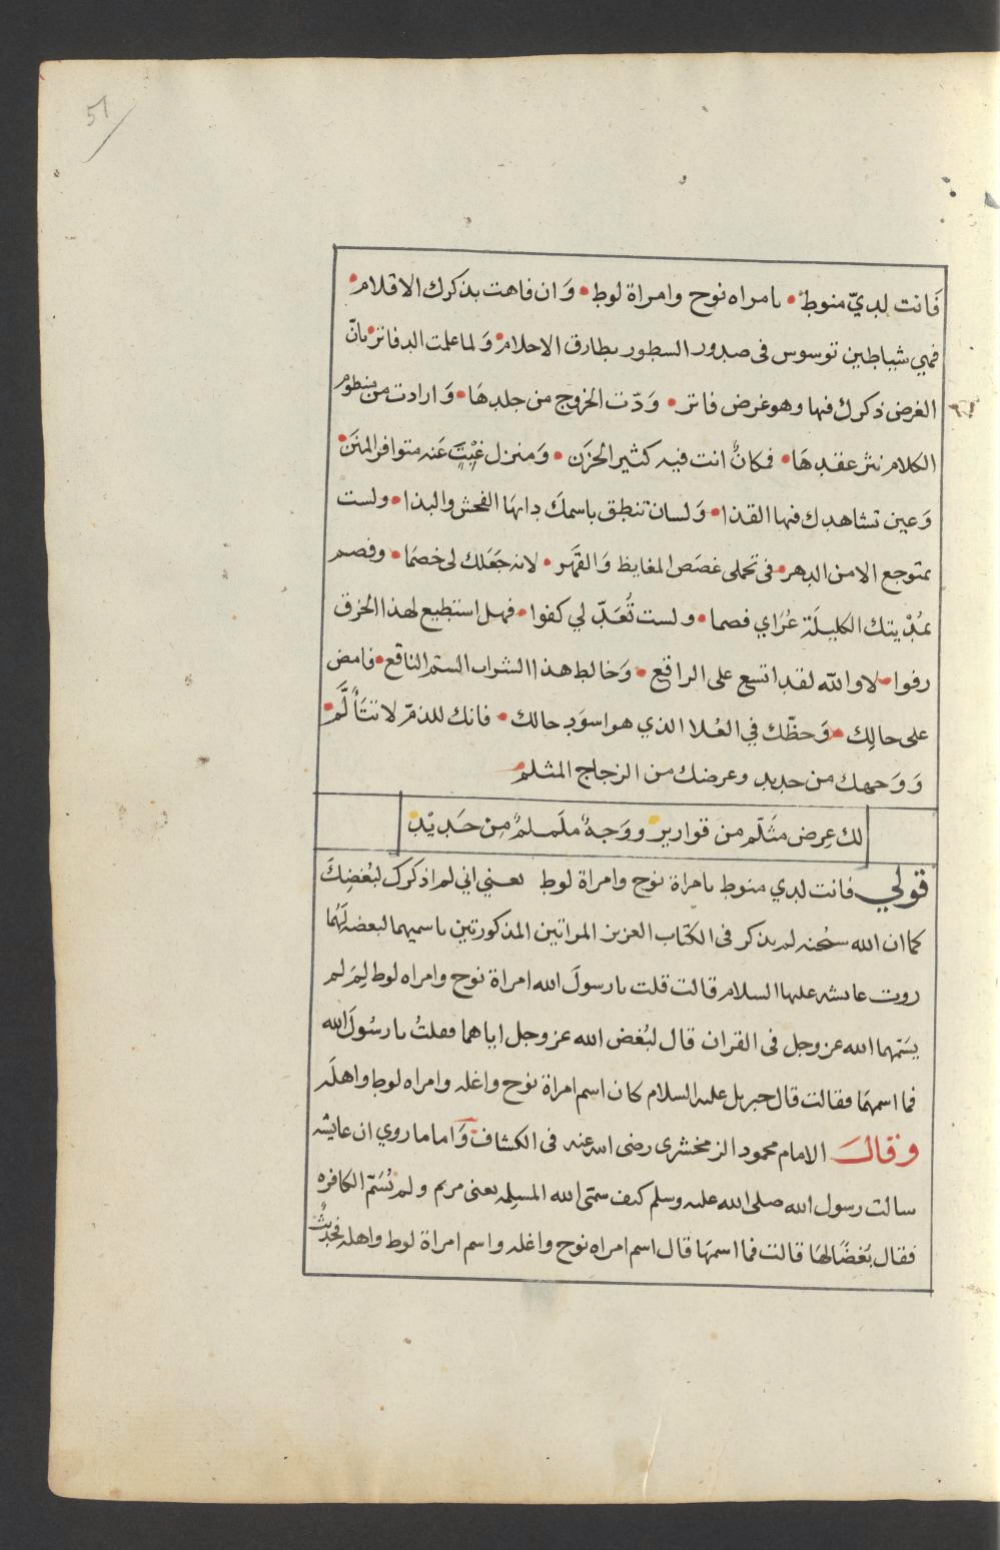 51
فَانت لديّ منوط • بامراه نوح وامراة لوط • وَان فاهت بذكرك الاقلام •
فهي شياطين توسوس فى صدور السطور بطارق الاحلام • وَلما علمت الدفاتر • بانّ
الغرض ذكرك فيها وهو غرض فاتر • وَدّت الخروج من جلدهَا • وَارادت من منظوم
الكلام نثر عقدهَا • فمكانٌ انت فيه كثير الحزَن • وَمنزل غِبْتَ عَنه متوافر المنَن •
وَعين تشاهدك فيها القذا • وَلسان تنطق باسمكَ دابهَا الفحش والبذا • ولست
بمتوجع الا من الدهر • فى تحملى غصَص المغايظ وَالقهَر • لانه جَعَلك لى خصمًا • وفصم
بمُدْيتك الكليلَة عُرَاي فصما • ولست تُعَدّ لي كفوا • فهل استطيع لهذا الخرق
رفوا • لا والله لقد اتسع على الراقع • وَخالط هذا الشراب السمّ الناقع • فامض
على حالِك • وَحظّك في العُلا الذي هو اسوَد حالك • فانك للذمّ لا تتَألَّم •
وَوَجهك من حديد وعرضك من الزجاج المثلم
لك عِرض مثَلّم من قوارير ووَجهٌ ململمٌ مِنْ حَديْدِ
قولي فانت لدي منوط بامراة نوح وامراة لوط يعني اني لم اذكرك لبُغضِكَ
كما ان الله سُبحنه لم يذكر فى الكتاب العزيز المراتين المذكورتين باسميهما لبعضه لَهُما
روت عايشه عليها السلام قالت قلت يا رسولَ الله امراة نوح وامراه لوط لِمَ لم
يسَمّهما الله عز وجل فى القران قال لبُغض الله عز وجل اياهما فقلتُ يا رسُولَ الله
فما اسمهمَا فقالت قال جبريل عليه السلام كان اسم امراة نوح واغله وامراه لوط واهلَه
وَقالَ الامام محمود الزمخشرى رضى الله عنه فى الكشاف وَاما ما روي ان عايشه
سالت رسول الله صلى الله عليه وسلم كيف سمّى الله المسلِمه يعنى مريم ولم يُسَمّ الكافره
فقال بُغضًا لهَا قالت فما اسمهَا قال اسم امراه نوح واغله واسم امراة لوط واهله فحديثٌ